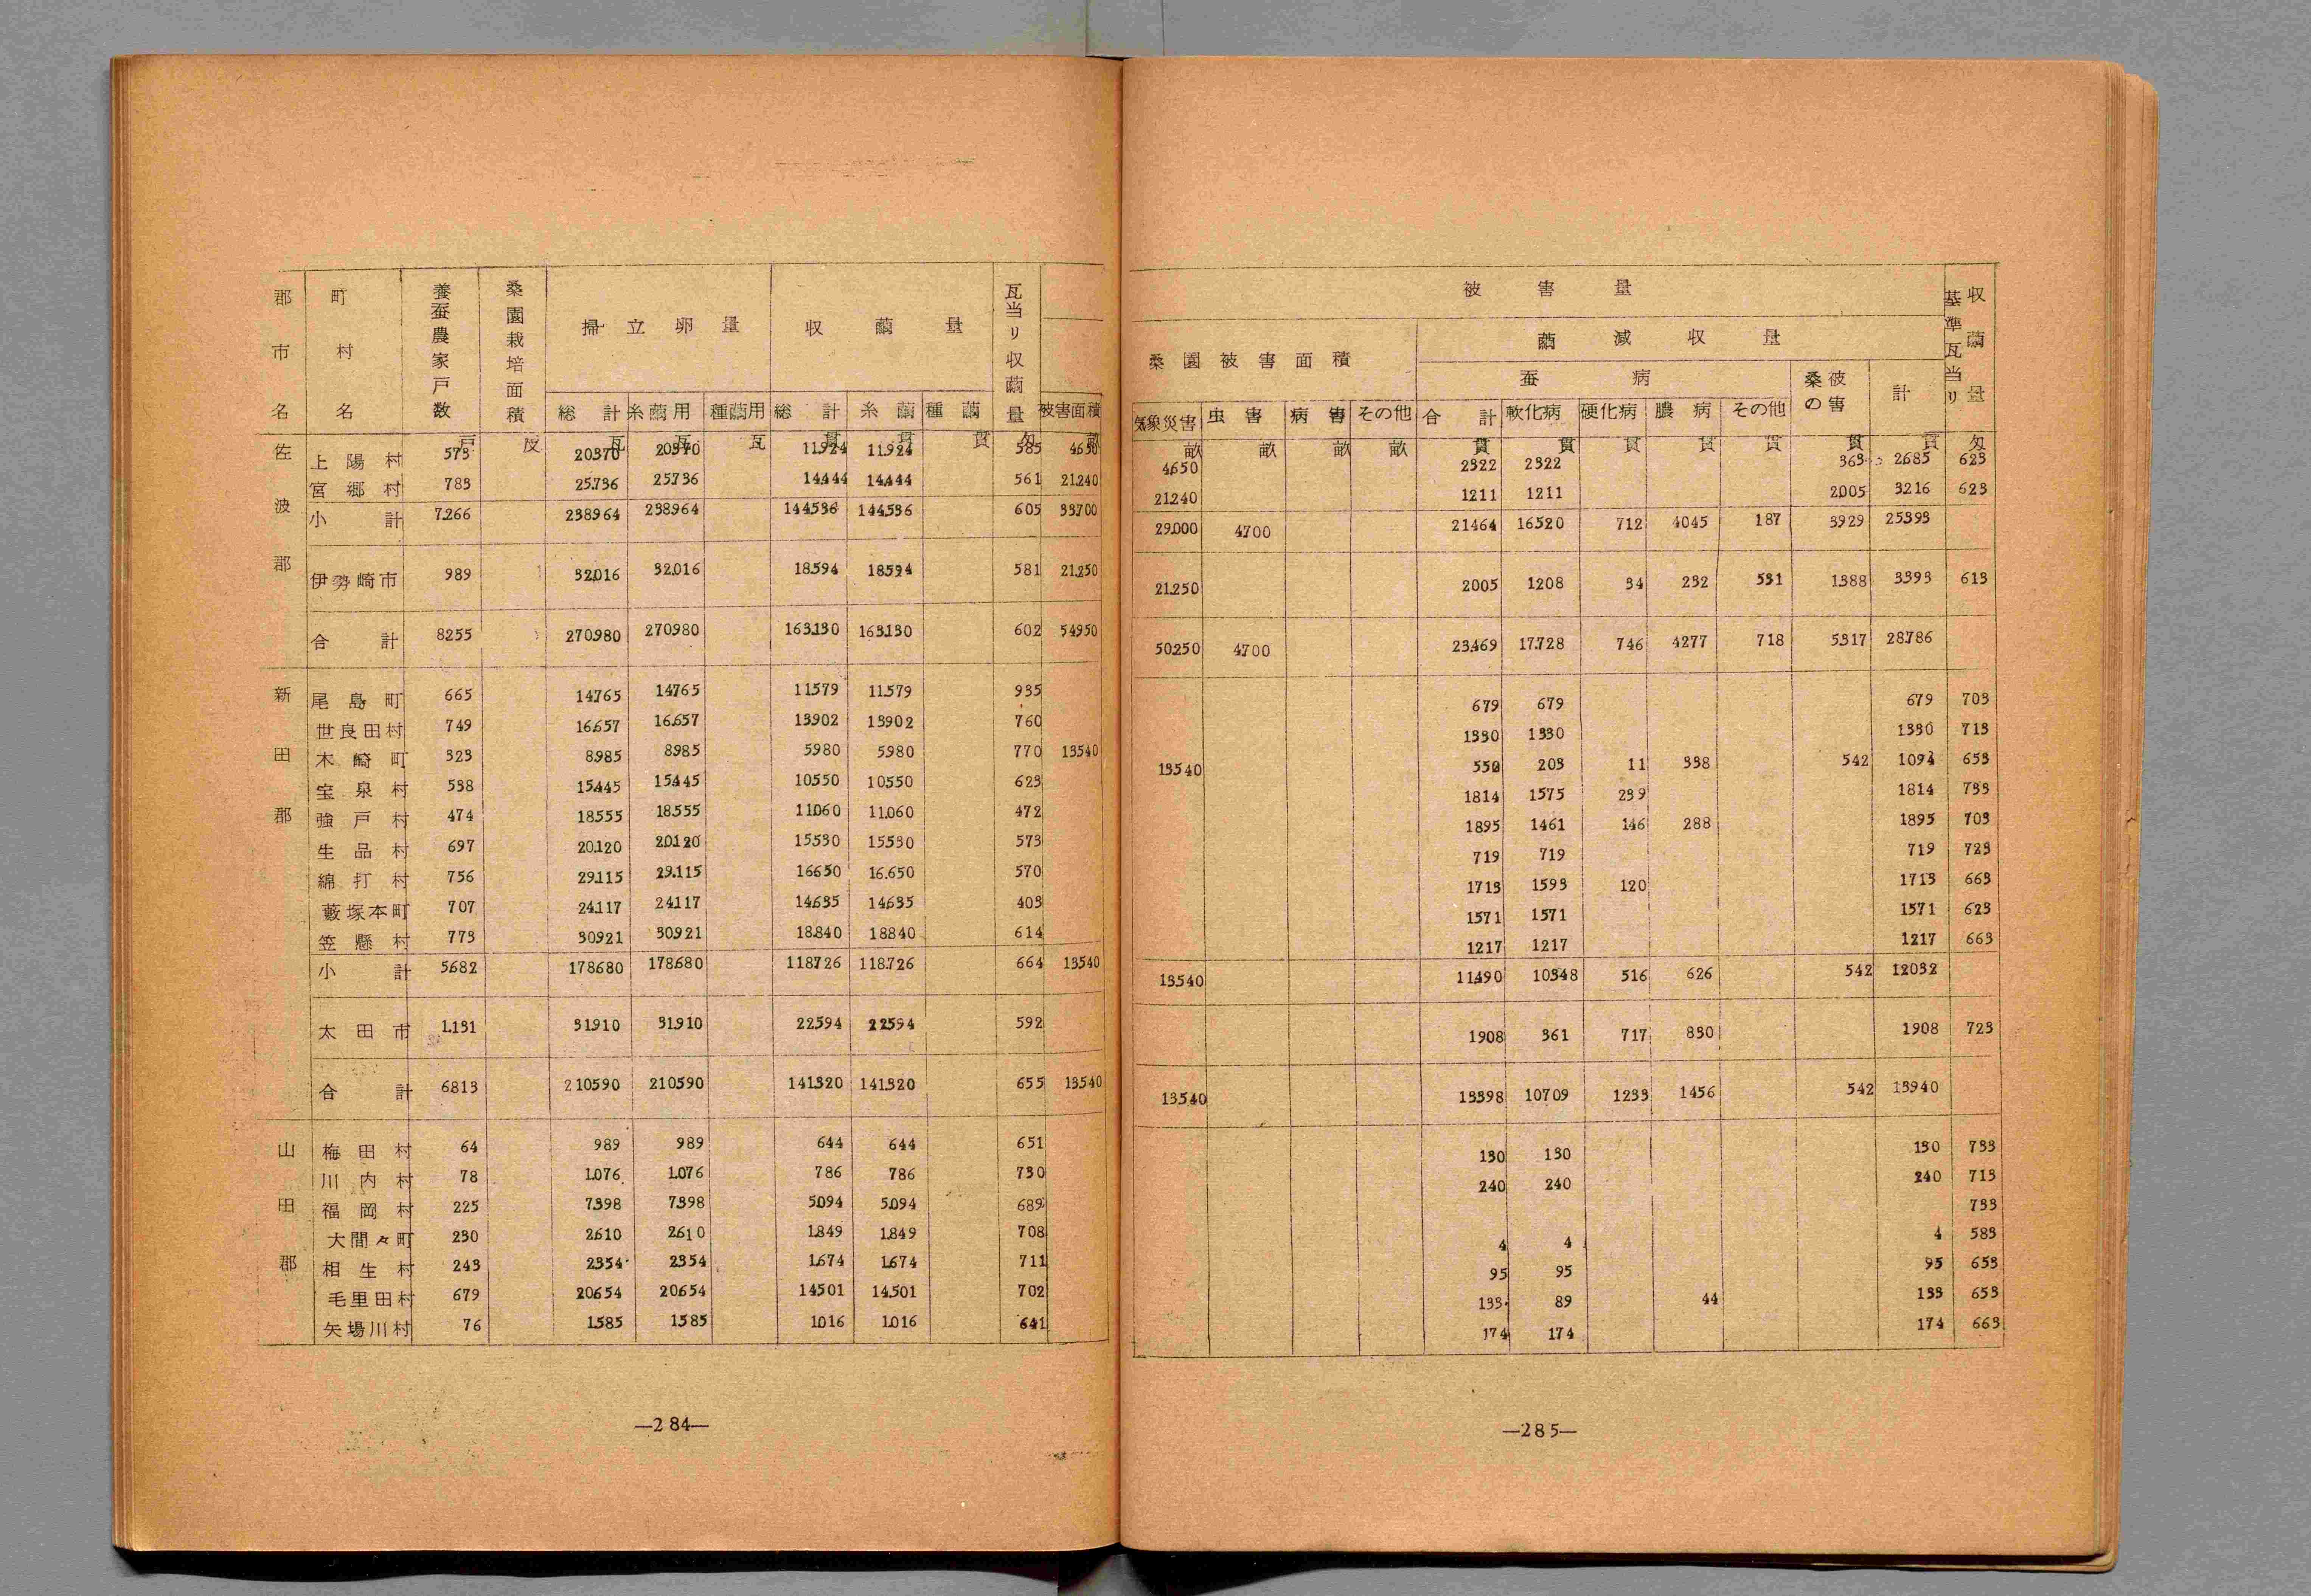 郡市名 町村名 養蚕農家戸数 桑園栽培面積 掃立卵量 収繭量 瓦当り収繭量
総計 糸繭用 種繭用 総計 糸繭 種繭 被害面積
戸 反 瓦 瓦 瓦 貫 貫 貫 匁 畝
佐波郡
上陽村 573 20370 20370 11.924 11.924 585 4650
宮郷村 783 25.736 25.736 14.444 14.444 561 21.240
小計 7.266 238964 238.964 144.536 144.536 605 33.700
伊勢崎市 989 32.016 32.016 18.594 18.594 581 21.250
合計 8255 270.980 270.980 163.130 163.130 602 54.950
新田郡
尾島町 665 14.765 14.765 11.579 11.579 935
世良田村 749 16.657 16.657 13.902 13.902 760
木崎町 323 8.985 8.985 5980 5980 770 13.540
宝泉村 538 15.445 15.445 10.550 10.550 623
強戸村 474 18.555 18.555 11.060 11.060 472
生品村 697 20.120 20.120 15530 15530 573
綿打村 756 29.115 29.115 16.650 16.650 570
藪塚本町 707 24.117 24.117 14.635 14.635 403
笠懸村 773 30.921 30.921 18.840 18.840 614
小計 5.682 178680 178.680 118.726 118.726 664 13.540
太田市 1.131 31.910 31.910 22.594 22.594 592
合計 6813 210590 210590 141.320 141.320 655 13.540
山田郡
梅田村 64 989 989 644 644 651
川内村 78 1.076 1.076 786 786 730
福岡村 225 7.398 7.398 5.094 5.094 689
大間々町 230 2.610 2.610 1.849 1.849 708
相生村 243 2.354 2.354 1.674 1.674 711
毛里田村 679 20.654 20.654 14.501 14.501 702
矢場川村 76 1.585 1.585 1.016 1.016 641
—284—
被害量 基準瓦当り収繭量
桑園被害面積 繭減収量
蚕病 桑の被害 計
気象災害 虫害 病害 その他 合計 軟化病 硬化病 膿病 その他
畝 畝 畝 畝 貫 貫 貫 貫 貫 貫 貫 匁
4.650 2322 2322 363 2685 623
21.240 1211 1211 2005 3216 623
29.000 4.700 21464 16520 712 4045 187 3929 25393
21.250 2005 1208 34 232 531 1388 3393 613
50.250 4.700 23.469 17.728 746 4277 718 5317 28.786
679 679 679 703
1330 1330 1330 713
13.540 203 11 338 542 653
1814 1575 239 1814 733
1895 1461 146 288 1895 703
719 719 719 723
1713 1593 120 1713 663
1571 1571 1571 623
1217 1217 1217 663
13.540 11490 10348 516 626 542 12032
1908 361 717 830 1908 723
13.540 13398 10709 1233 1456 542 13940
130 130 130 733
240 240 240 713
733
4 4 4 583
95 95 95 653
133 89 44 133 653
174 174 174 663
—285—